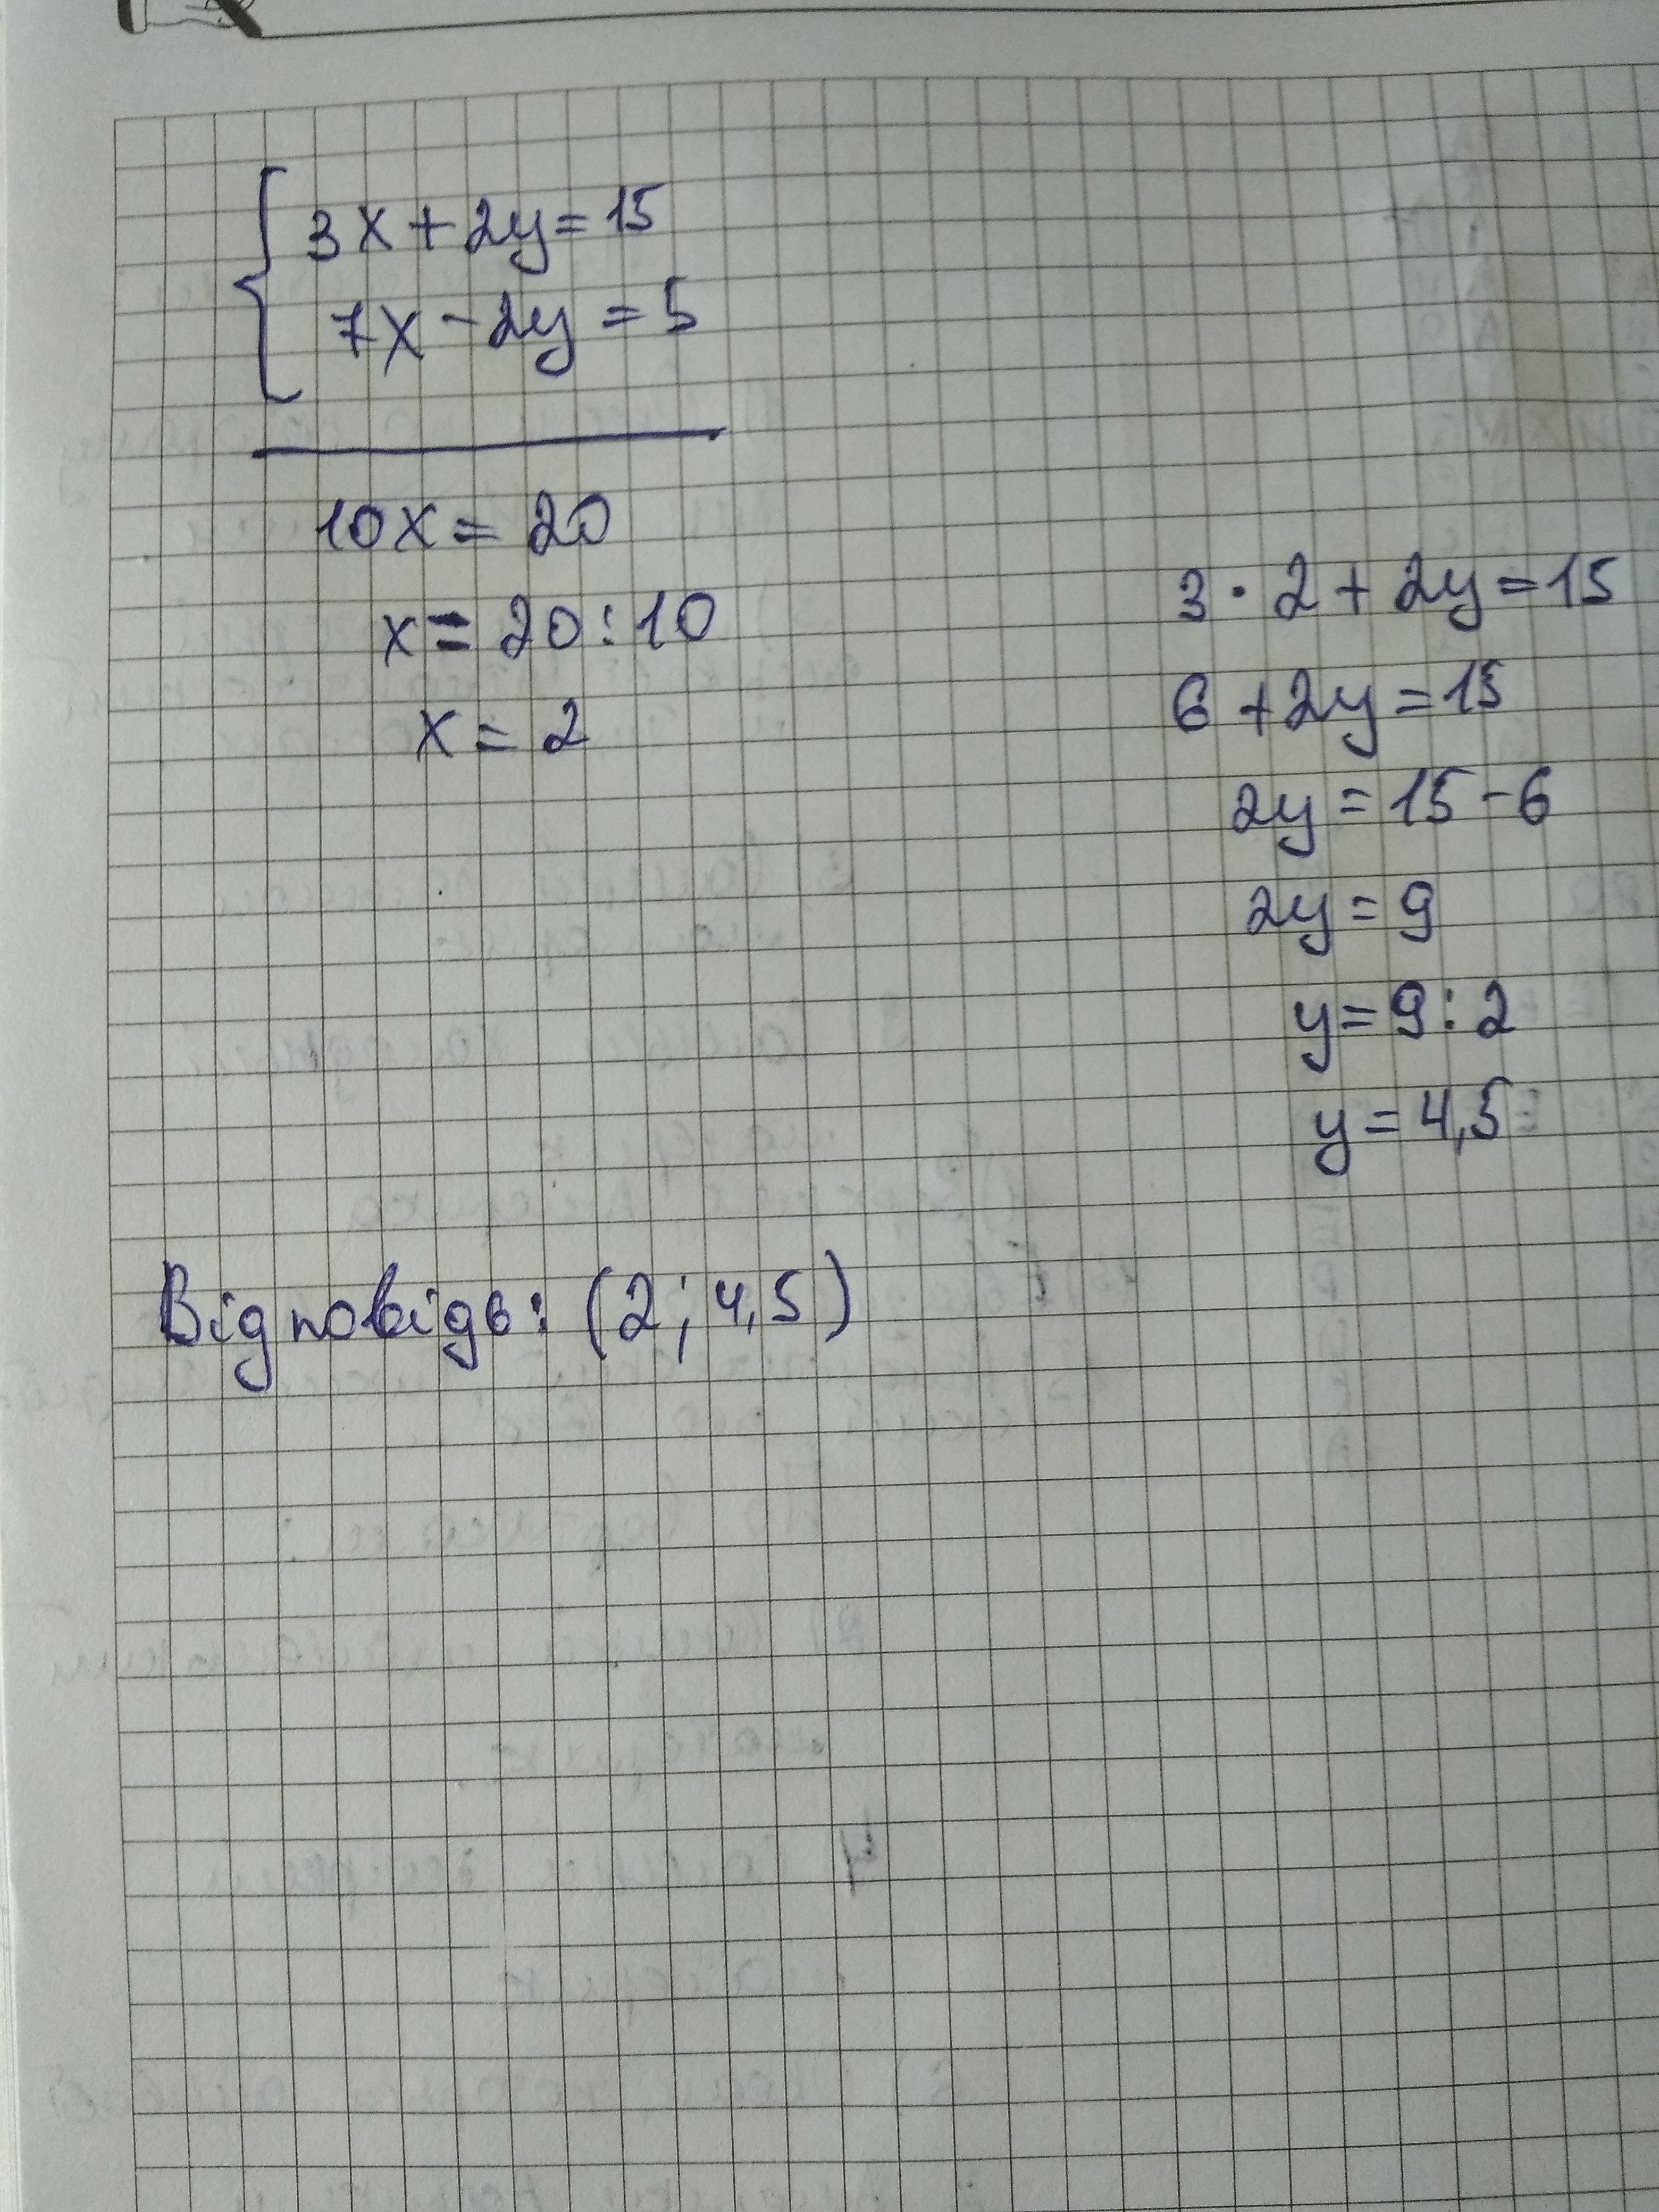 3x+2y=15
7x-2y=5
10x=20
x=20:10
x=2
3·2+2y=15
6+2y=15
2y=15-6
2y=9
y=9:2
y=4,5
Відповідь: (2; 4,5)